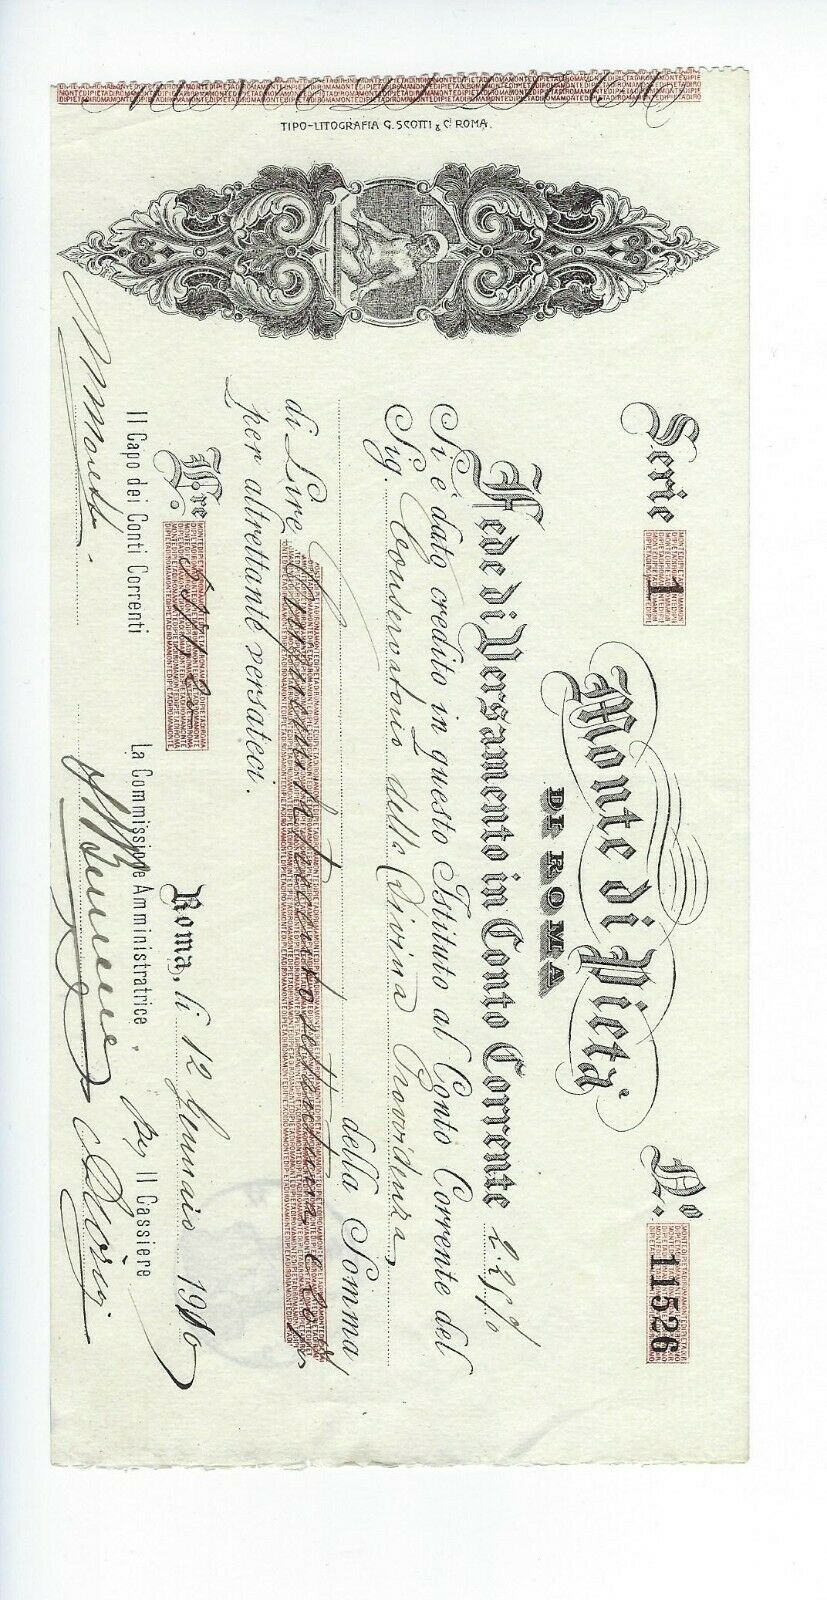 Monte di Pietà
DI ROMA
Serie 1 N.º 11526
Fede di Versamento in Conto Corrente 2.2 %
Si è dato credito in questo Istituto al Conto Corrente del
Sig. Conservatorio della Divina Provvidenza,
della Somma
di Lire Cinquemila trecento settantuna, e 20/
per altrettante versateci.
L.re 5371,20
Roma, li 12 Gennaio 1910
Il Capo dei Conti Correnti
La Commissione Amministratrice
Il Cassiere
TIPO-LITOGRAFIA G. SCOTTI & C.i ROMA.
MONTEDIPIETADIROMA